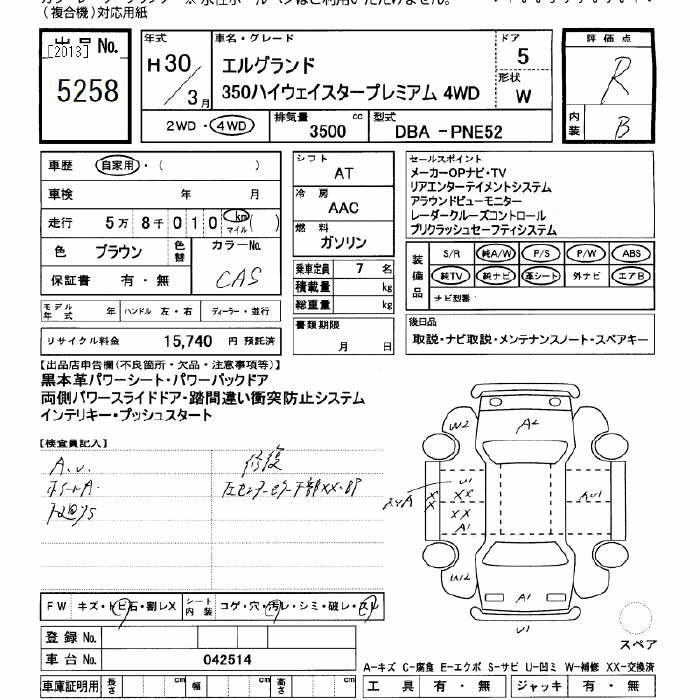 （複合機）対応用紙
出品 No.
[2013]
5258
年式
H30/3月
車名・グレード
エルグランド
350ハイウェイスタープレミアム 4WD
ドア
5
形状
W
評価点
R
内装
B
2WD・4WD
排気量
3500 cc
型式
DBA -PNE52
車歴 自家用・( )
車検 年 月
走行 5万 8千 010 km マイル ( )
色 ブラウン 色替
カラーNo.
CAS
保証書 有・無
シフト
AT
冷房
AAC
燃料
ガソリン
乗車定員 7 名
積載量 kg
総重量 kg
セールスポイント
メーカーOPナビ・TV
リアエンターテイメントシステム
アラウンドビューモニター
レーダークルーズコントロール
プリクラッシュセーフティシステム
装備品
S/R 純A/W P/S P/W ABS
純TV 純ナビ 革シート 外ナビ エアB
ナビ型番:
モデル年式 年 ハンドル 左・右 ディーラー・並行
リサイクル料金 15,740 円 預託済
書類期限
月 日
後日品
取説・ナビ取説・メンテナンスノート・スペアキー
【出品店申告欄(不良箇所・欠品・注意事項等)】
黒本革パワーシート・パワーバックドア
両側パワースライドドア・踏間違い衝突防止システム
インテリキー・プッシュスタート
【検査員記入】
A.U.
修復
シートA.
左センターピラー下部XX・BP
W2
A2
U1
XX
XX
XX
A1
AU1
W2
A1
U1
スペア
FW キズ・トビ石・割レX
シート内装 コゲ・穴・汚レ・シミ・破レ・スレ
登録 No.
車台 No. 042514
車庫証明用 長さ cm 幅 cm 高さ cm
A-キズ C-腐食 E-エクボ S-サビ U-凹ミ W-補修 XX-交換済
工具 有・無 ジャッキ 有・無